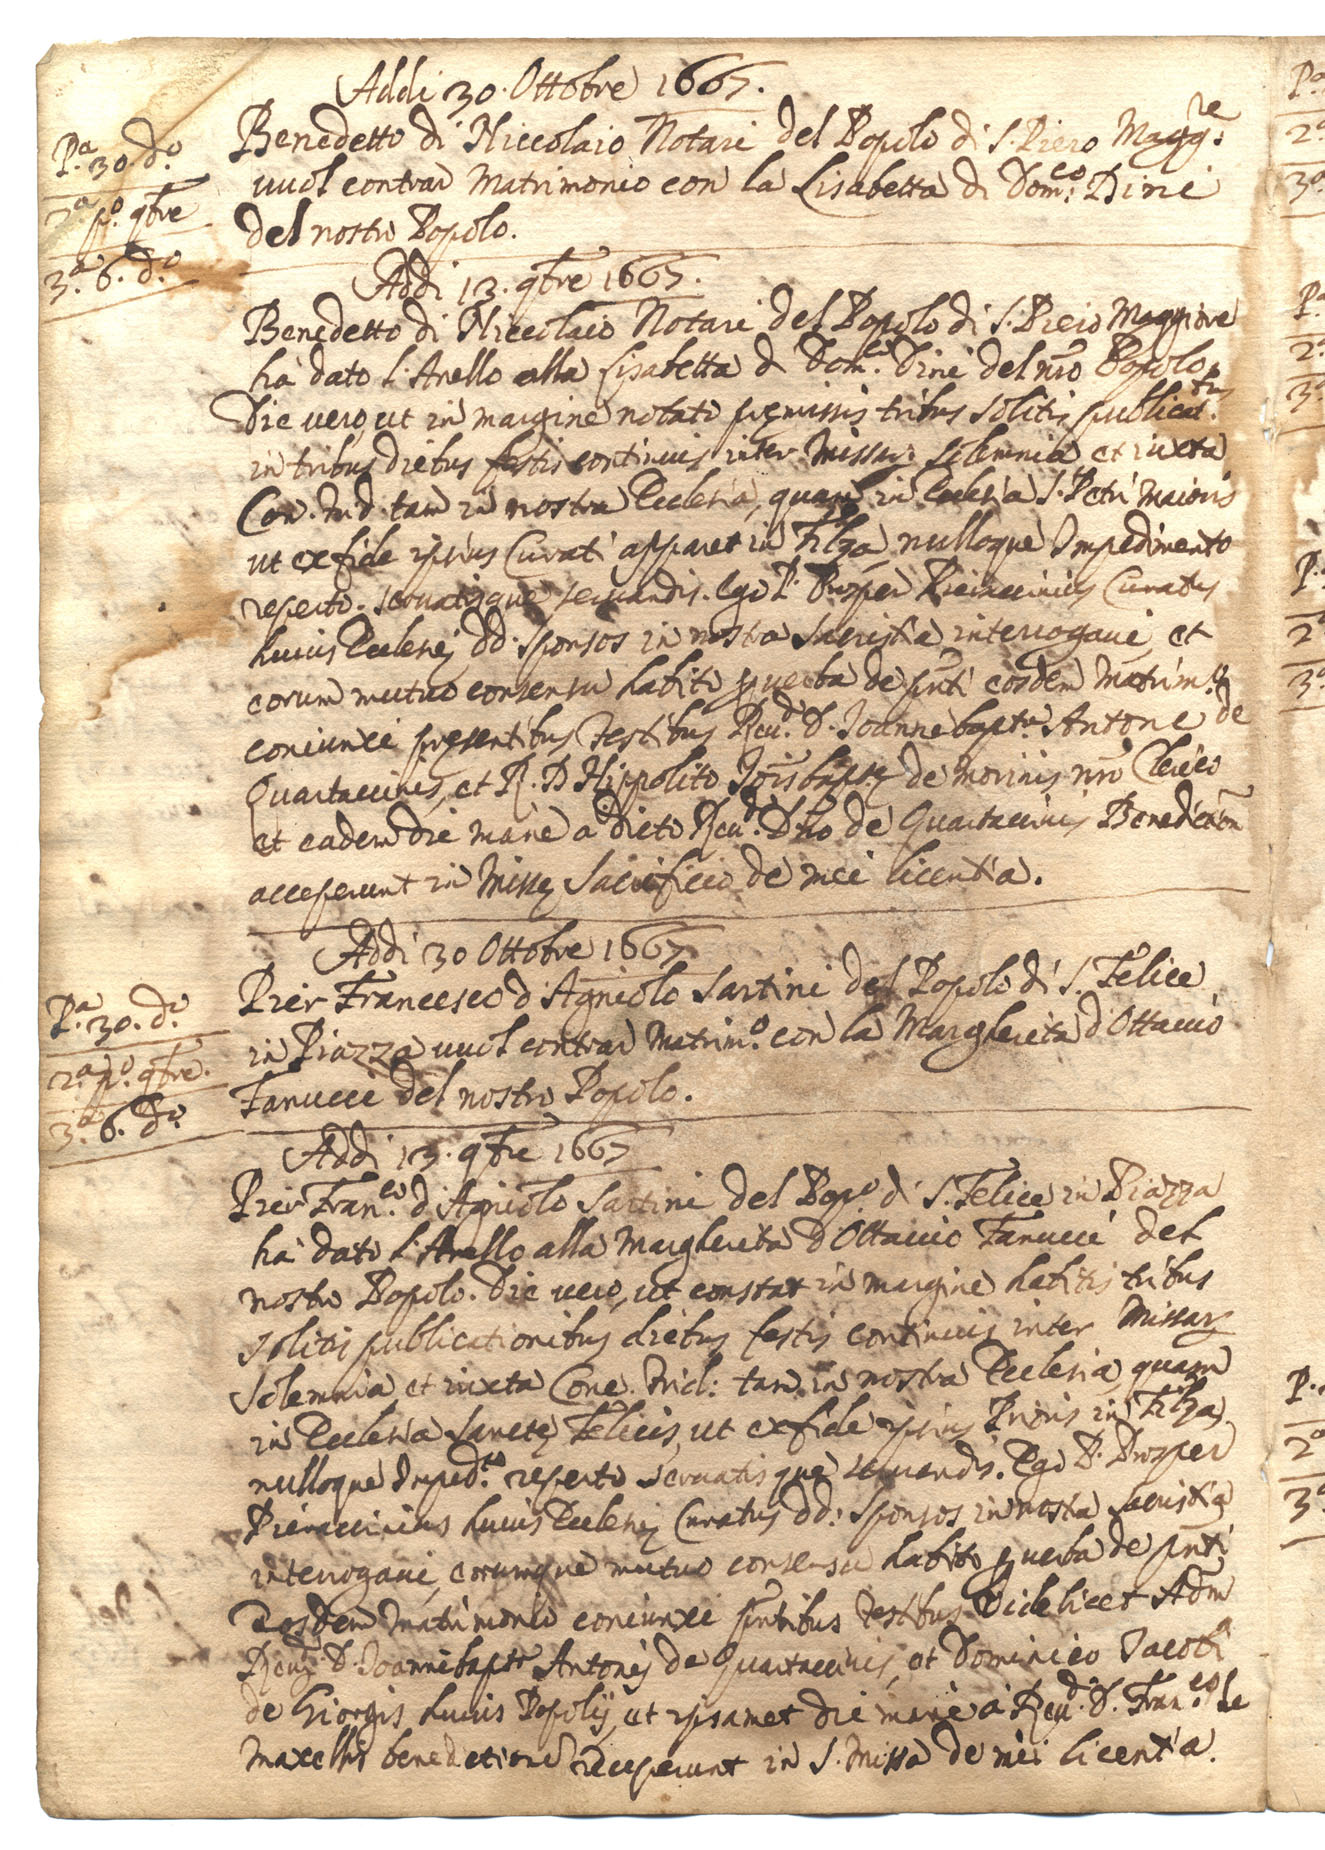 Addi 30. Ottobre 1667.
P.a 30 d.o
2.a p.o 9bre
3.a 6. d.o
Benedetto di Niccolaio Notari del Popolo di S. Piero Magg.re
vuol contrar Matrimonio con la Lisabetta di Dom.co Dini
del nostro Popolo.
Addi 13. 9bre 1667.
Benedetto di Niccolaio Notari del Popolo di S. Piero Maggiore
hà dato l'Anello alla Lisabetta di Dom.co Dini del nro Popolo
Die vero, ut in margine notato premissis tribus solitis publicat.
in tribus diebus festis continuis inter Missar. solemnia et iuxta
Con. Trid. tam in nostra Ecclesia, quam in Ecclesia S. Petri Maioris
ut ex fide ipsius Curati apparet in Filza nulloque Impedimento
reperto. servatisque servandis. Ego P. Prosper Pieraccinius Curatus
huius Ecclesię dd. sponsos in nostra Sacristia interrogavi, et
eorum mutuo consensu habito p verba de pnti eosdem Matrim.o
coniunxi presentibus testibus Reu.do D. Joanne bapt.a Antonij de
Quartaccinis, et R. D. Hippolito Jois bapte de morinis nro Clerico
et eadem die mane a dicto Reu.do Dno de Quartaccinis Benedictionem
acceperunt in Missę Sacrificio de mei licentia.
Addi 30 Ottobre 1667
P.a 30. d.o
2.a p.o 9bre.
3.a 6. d.o
Pier Francesco d'Agniolo Sartini del Popolo di S. Felice
in Piazza vuol contrar Matrim.o con la Margherita d'Ottavio
Fanucci del nostro Popolo.
Addi 13. 9bre 1667
Pier Fran.co d'Agniolo Sartini del Pop.o di S. Felice in Piazza
hà dato l'Anello alla Margherita d'Ottavio Fanucci del
nostro Popolo. Die vero, ut constat in margine habitis tribus
solitis publicationibus diebus festis continuis inter Missarum
solemnia et iuxta Conc. Trid: tam in nostra Ecclesia, quam
in Ecclesia Sanctę Felicis, ut ex fide ipsius Prioris in Filza,
nulloque Imped.to reperto servatisque servandis. Ego P. Prosper
Pieraccinius huius Ecclesię Curatus dd: sponsos in nostra Sacristia
interrogavi, eorumque mutuo consensu habito p verba de pnti
Eosdem Matrimonio coniunxi pntibus testibus Videlicet Adm
Reu. D. Joannebapta Antonij de Quartaccinis, et Dominico Jacobi
de Giorgis huius Popolij, et ipsamet die mane a Reu.do D. Fran.co de
Macellis benedictione receperunt in S. Missa de mei licentia.
P.a
2.a
3.a
P.a
2.a
3.a
P.
2.a
3.a
P.
2.a
3.a